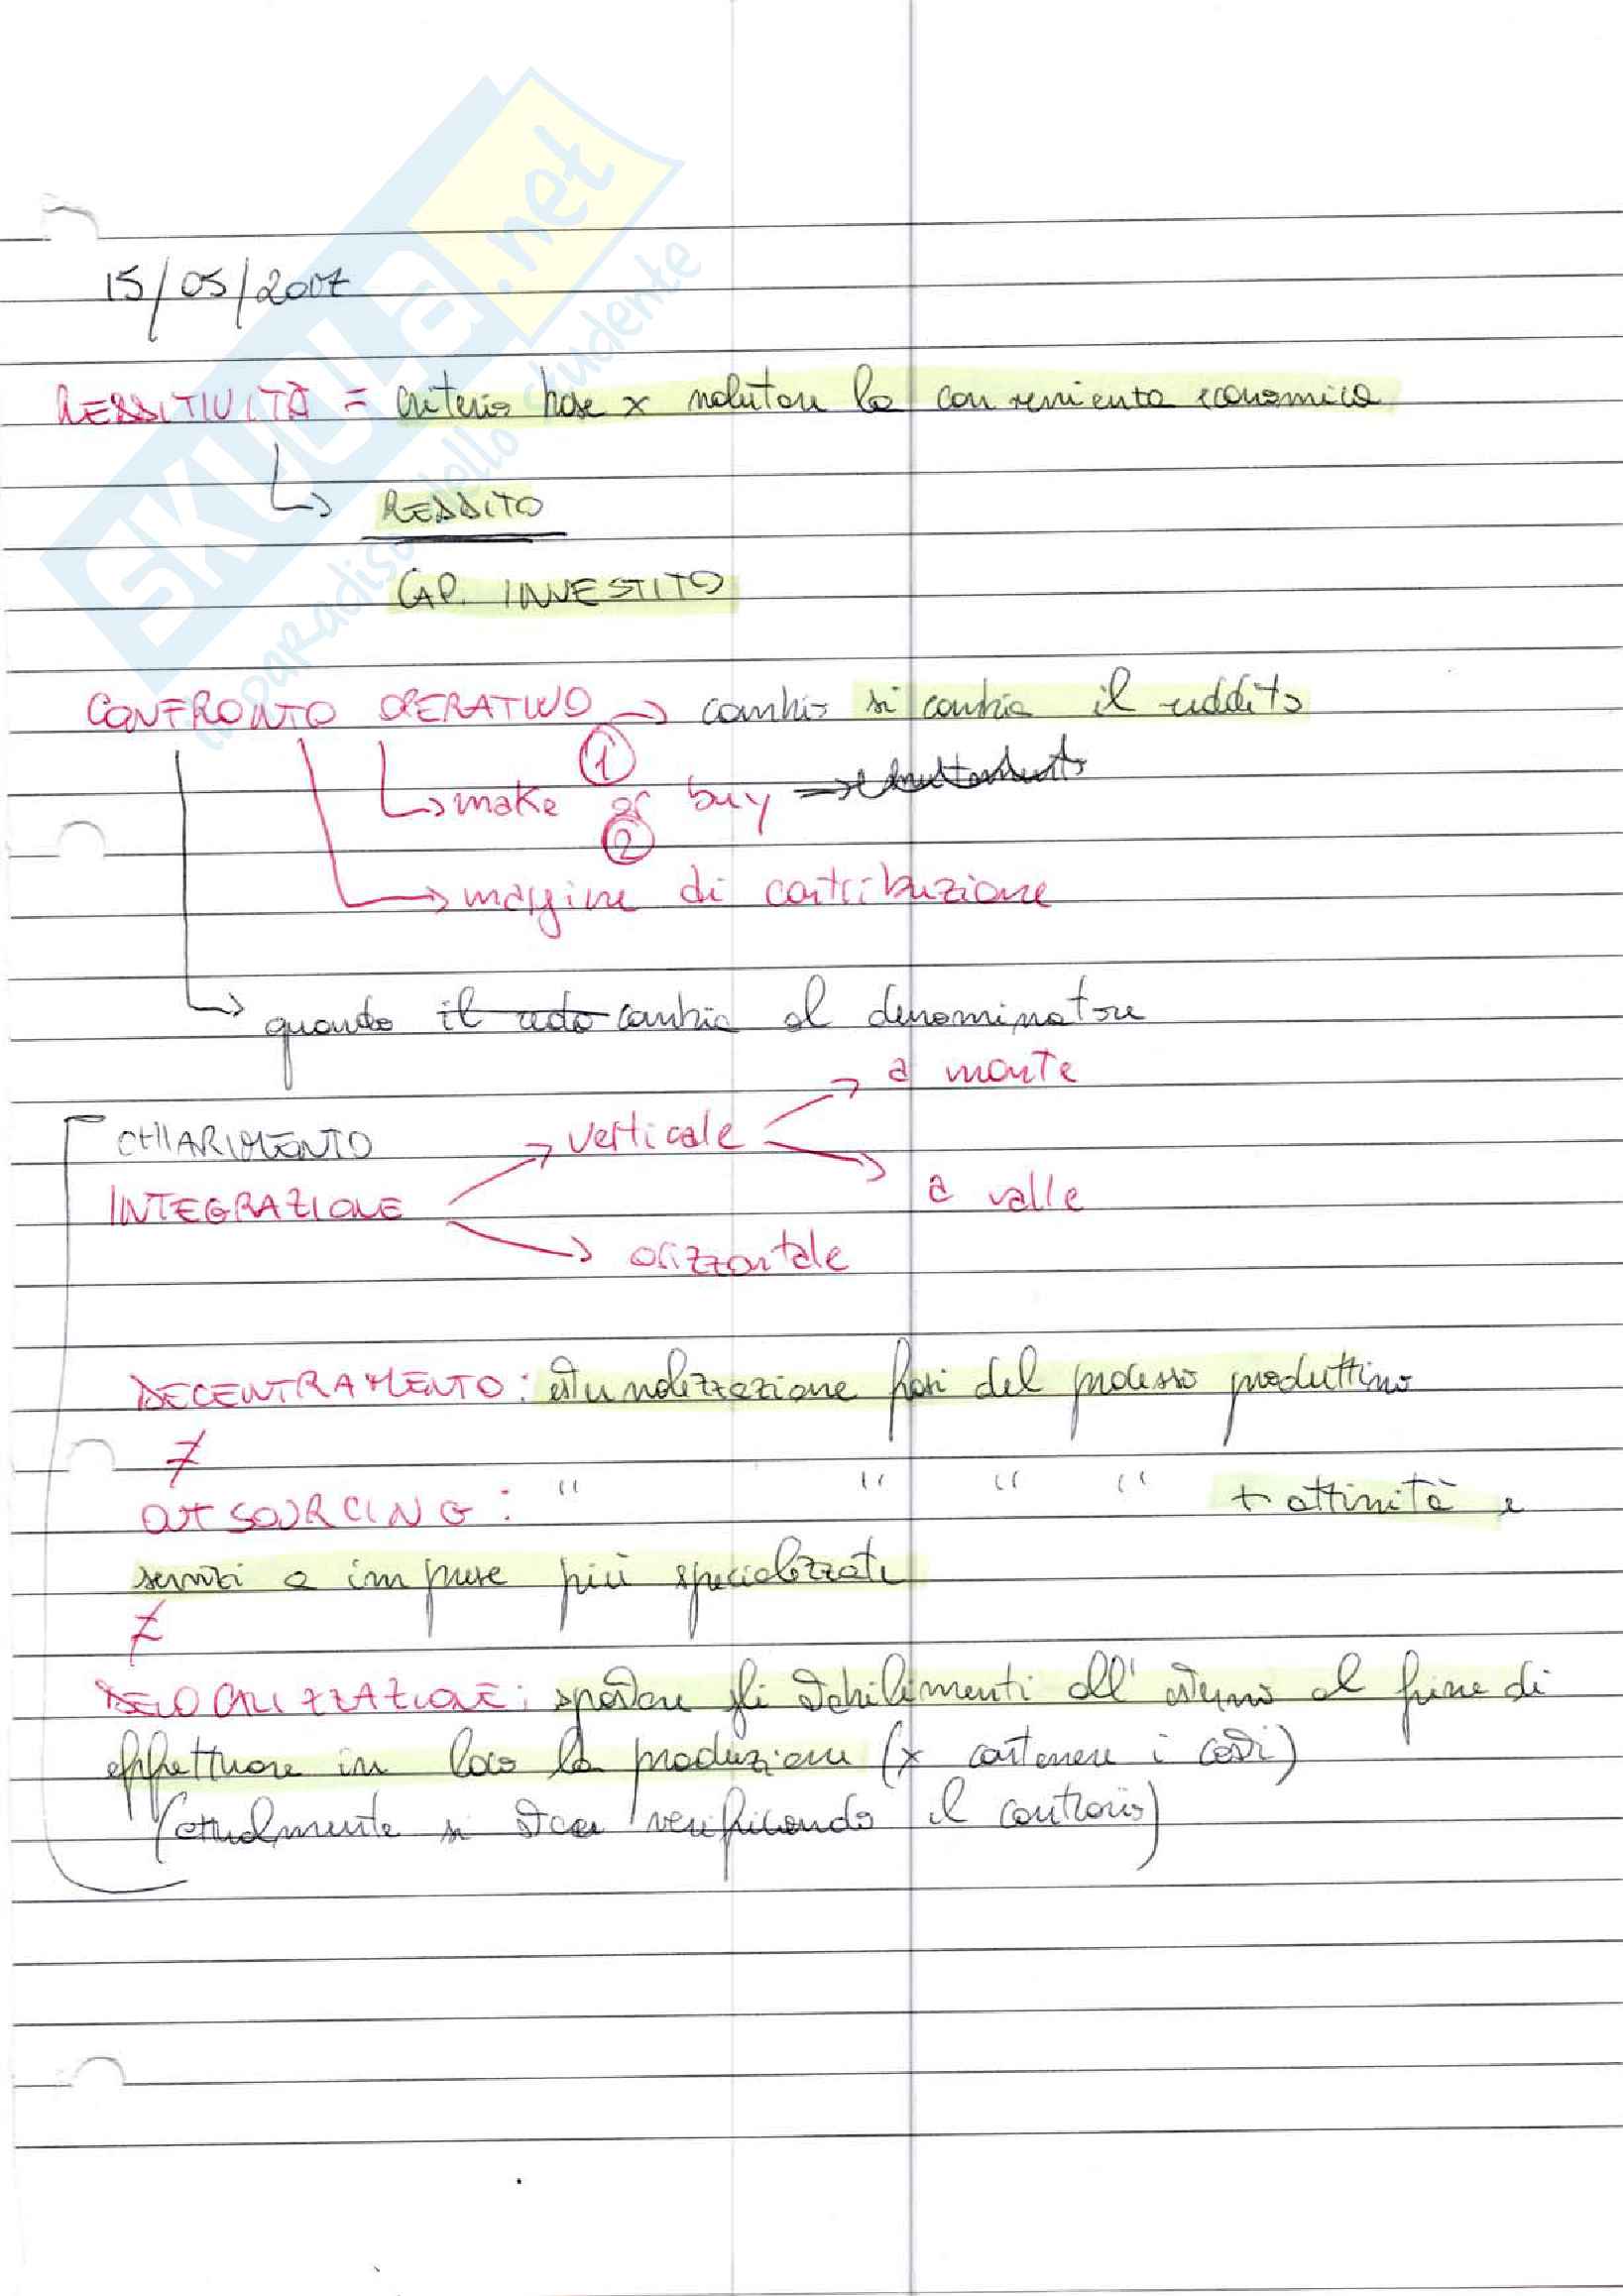 SKUOLA.net
il paradiso dello studente
15/05/2007
REDDITIVITÀ = criterio base x valutare la convenienza economica
↳ REDDITO
CAP. INVESTITO
CONFRONTO OPERATIVO → cambio si cambia il reddito
①
↳ make or buy →
②
→ margine di contribuzione
↳ quando il redo cambia al denominatore
→ a monte
CHIARIMENTO → verticale
→ a valle
INTEGRAZIONE
→ orizzontale
DECENTRAMENTO: esternalizzazione fasi del processo produttivo
≠
OUTSOURCING: " " " " + attività e
servizi a imprese più specializzate
≠
DELOCALIZZAZIONE: spostare gli stabilimenti all'esterno al fine di
effettuare in loco la produzione (x contenere i costi)
(attualmente si sta verificando il contrario)